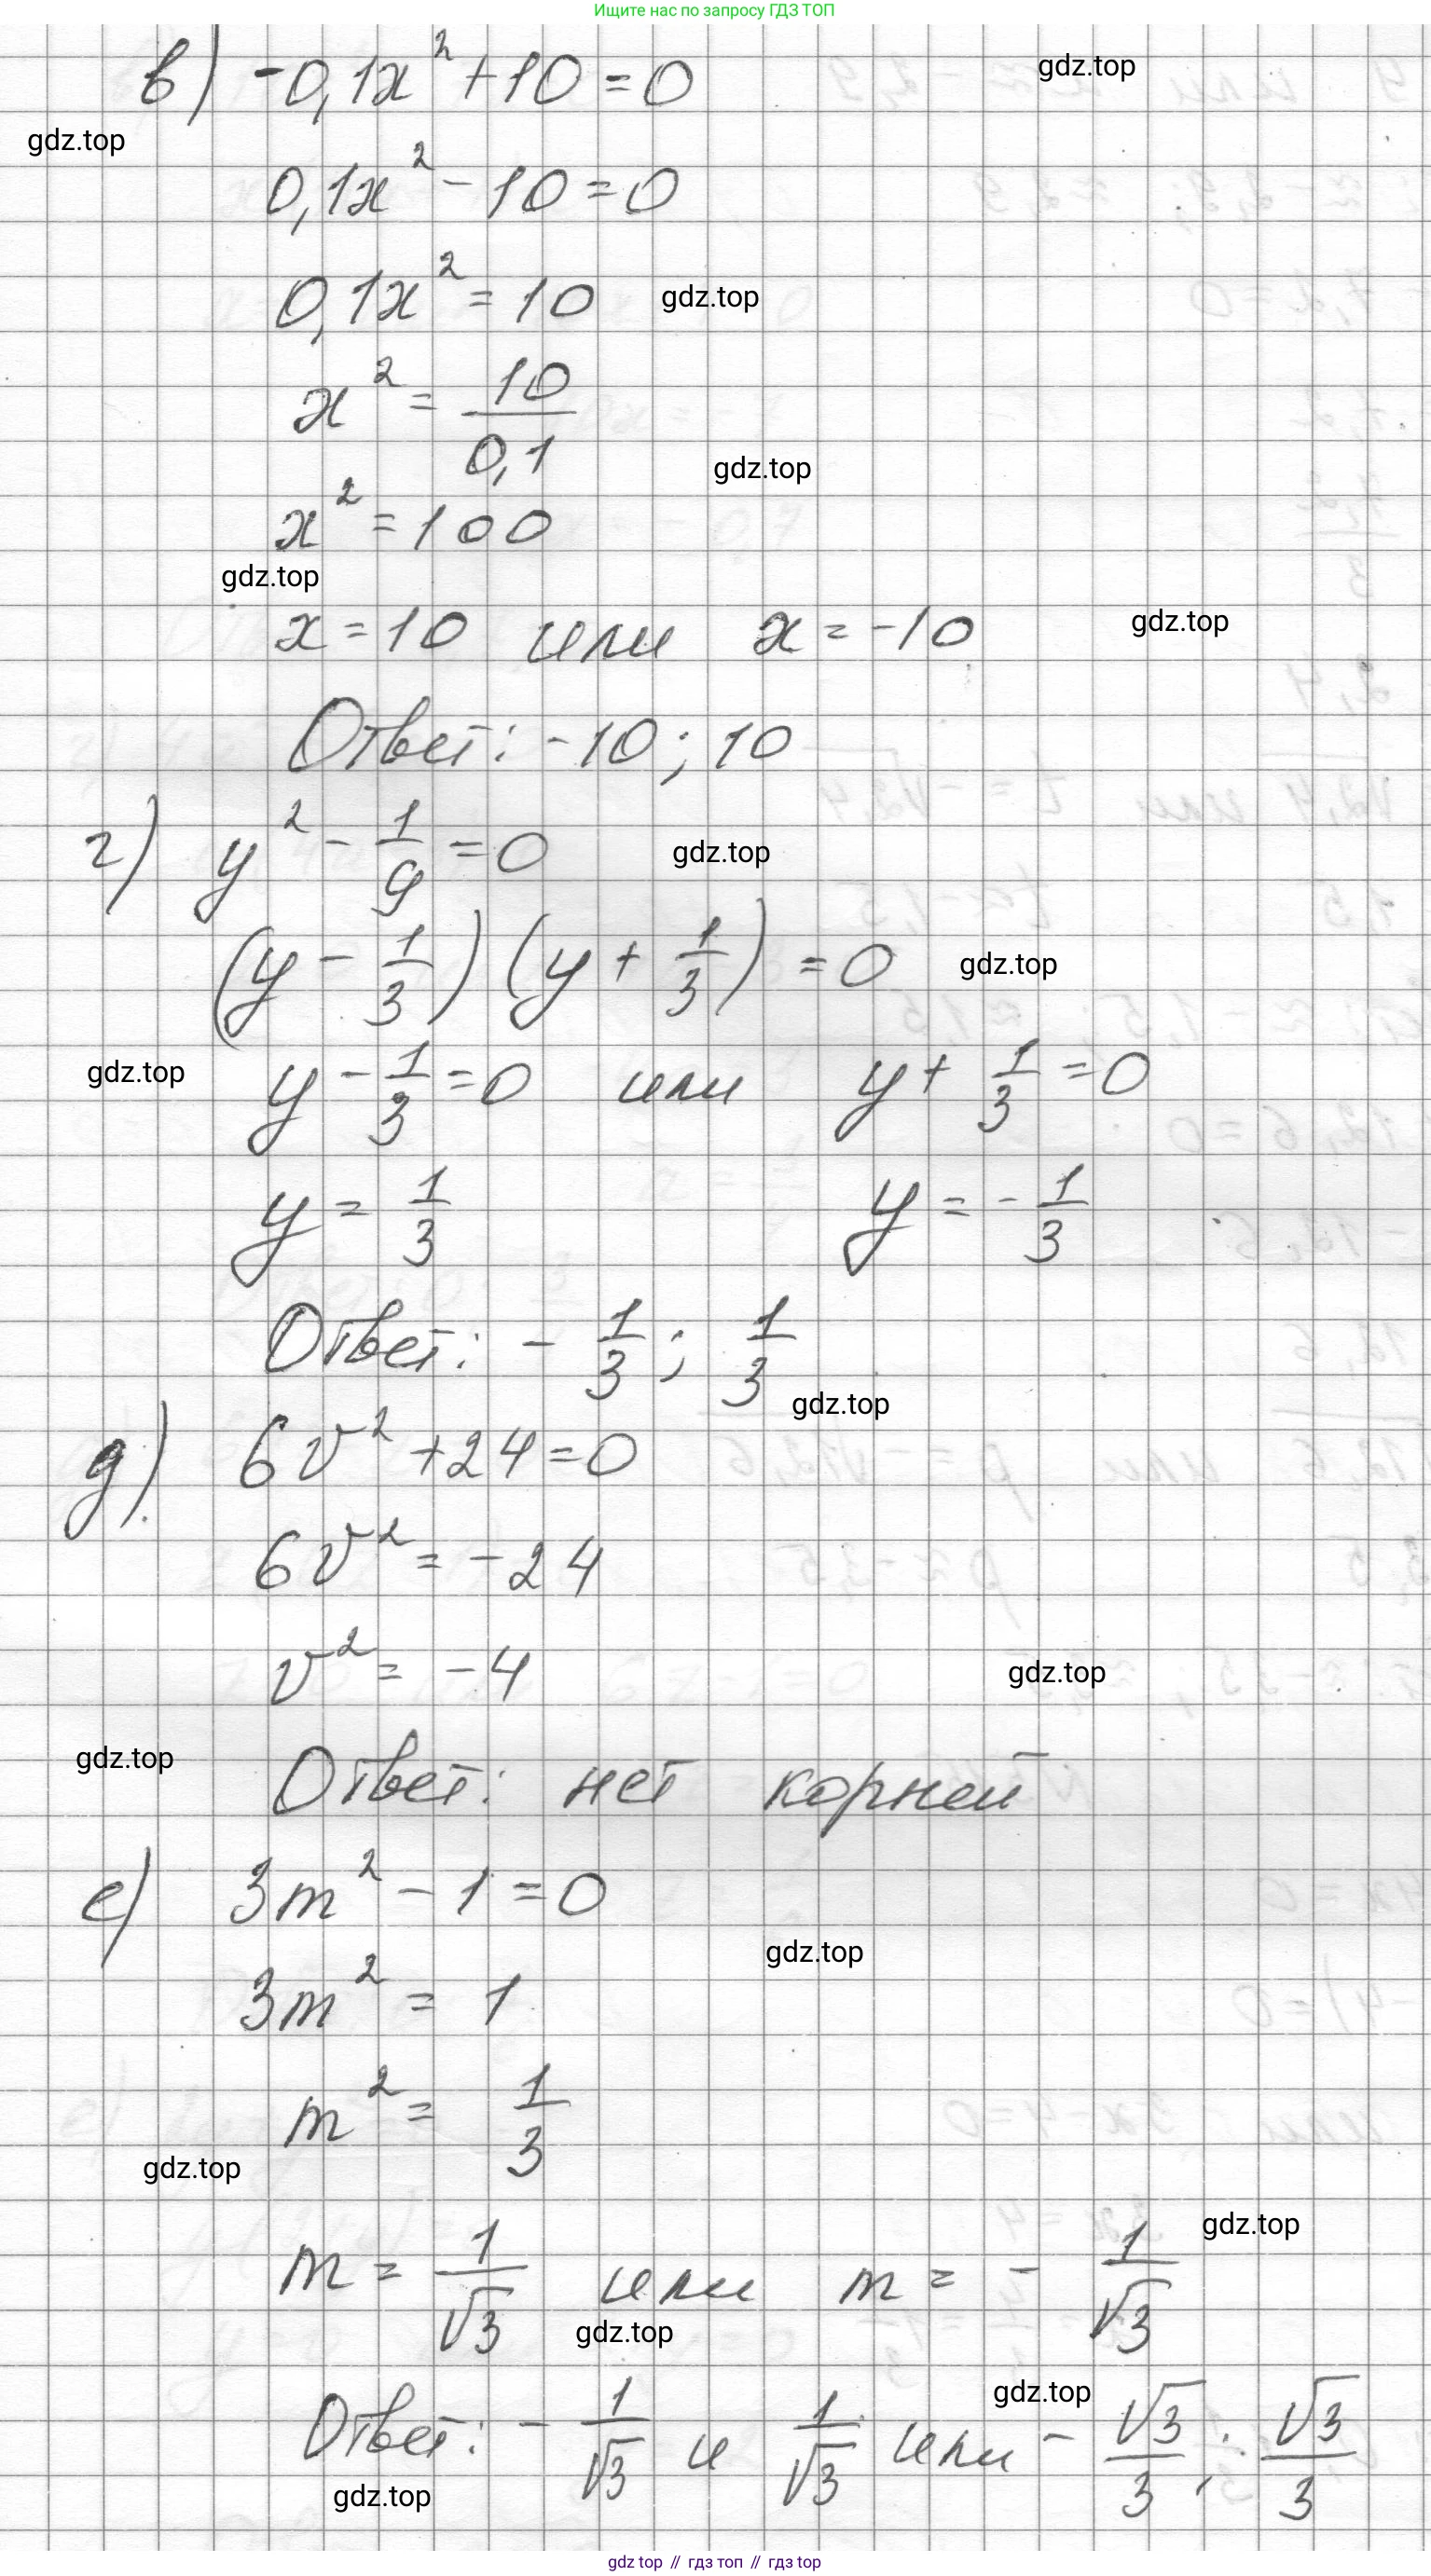 Ищите нас по запросу ГДЗ ТОП
в) -0,1x² + 10 = 0
gdz.top
gdz.top
0,1x² - 10 = 0
0,1x² = 10
gdz.top
x² = 10/0,1
gdz.top
x² = 100
gdz.top
x = 10 или x = -10
gdz.top
Ответ: -10; 10
г) y² - 1/9 = 0
gdz.top
(y - 1/3)(y + 1/3) = 0
gdz.top
gdz.top
y - 1/3 = 0 или y + 1/3 = 0
y = 1/3 y = -1/3
Ответ: -1/3; 1/3
gdz.top
д) 6v² + 24 = 0
6v² = -24
v² = -4
gdz.top
gdz.top
Ответ: нет корней
е) 3m² - 1 = 0
gdz.top
3m² = 1
m² = 1/3
gdz.top
gdz.top
m = 1/√3 или m = - 1/√3
gdz.top
gdz.top
Ответ: - 1/√3 и 1/√3 или - √3/3; √3/3
gdz.top
gdz top // гдз топ // гдз top